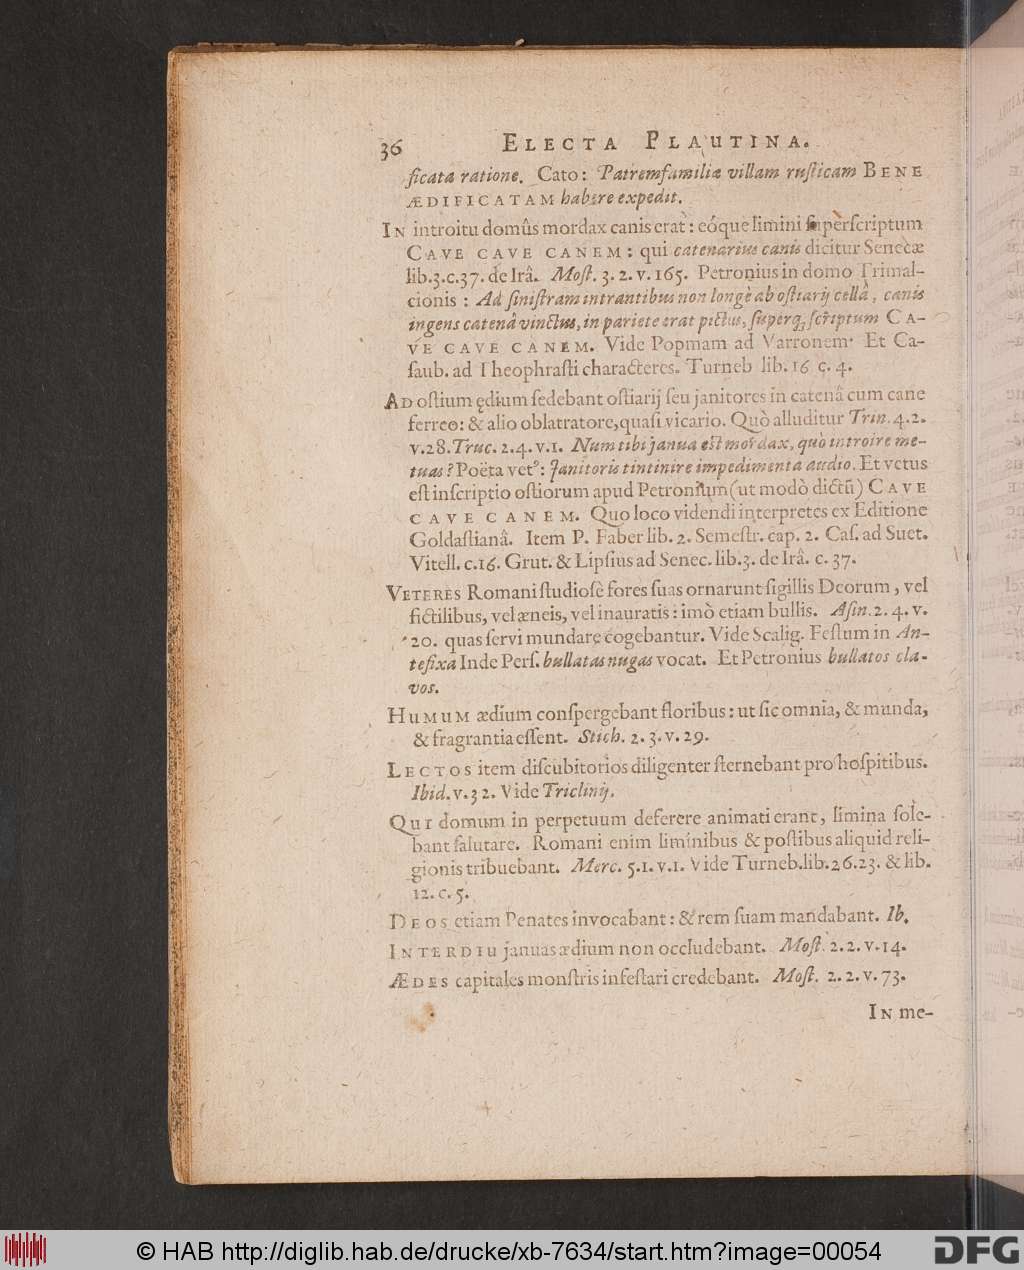 36 ELECTA PLAUTINA.
ficata ratione. Cato: Patremfamiliæ villam ruſticam BENE
ÆDIFICATAM habere expedit.
IN introitu domûs mordax canis erat: eóque limini ſuperſcriptum
CAVE CAVE CANEM: qui catenarius canis dicitur Senecæ
lib.3.c.37. de Irâ. Moſt. 3. 2. v. 165. Petronius in domo Trimal-
cionis: Ad ſiniſtram intrantibus non longè ab oſtiarij cellâ, canis
ingens catenâ vinctus, in pariete erat pictus, ſuperq́; ſcriptum CA-
VE CAVE CANEM. Vide Popmam ad Varronem. Et Ca-
ſaub. ad Theophraſti characteres. Turneb lib. 16 c. 4.
AD oſtium ędium ſedebant oſtiarij ſeu janitores in catenâ cum cane
ferreo: & alio oblatratore, quaſi vicario. Quò alluditur Trin. 4. 2.
v. 28. Truc. 2. 4. v. 1. Num tibi janua eſt mordax, quò introire me-
tuas? Poëta vetꝰ: Janitoris tintinire impedimenta audio. Et vetus
eſt inſcriptio oſtiorum apud Petronium (ut modò dictũ) CAVE
CAVE CANEM. Quo loco videndi interpretes ex Editione
Goldaſtianâ. Item P. Faber lib. 2. Semeſtr. cap. 2. Caſ. ad Suet.
Vitell. c.16. Grut. & Lipſius ad Senec. lib.3. de Irâ. c. 37.
VETERES Romani ſtudioſè fores ſuas ornarunt ſigillis Deorum, vel
fictilibus, vel æneis, vel inauratis: imò etiam bullis. Aſin. 2. 4. v.
20. quas ſervi mundare cogebantur. Vide Scalig. Feſtum in An-
tefixa Inde Perſ. bullatas nugas vocat. Et Petronius bullatos cla-
vos.
HUMUM ædium conſpergebant floribus: ut ſic omnia, & munda,
& fragrantia eſſent. Stich. 2. 3. v. 29.
LECTOS item diſcubitorios diligenter ſternebant pro hoſpitibus.
Ibid. v. 32. Vide Triclinij.
QUI domum in perpetuum deſerere animati erant, limina ſole-
bant ſalutare. Romani enim liminibus & poſtibus aliquid reli-
gionis tribuebant. Merc. 5. 1. v. 1. Vide Turneb. lib. 26. 23. & lib.
12. c. 5.
DEOS etiam Penates invocabant: & rem ſuam mandabant. Ib.
INTERDIU januas ædium non occludebant. Moſt. 2. 2. v. 14.
ÆDES capitales monſtris infeſtari credebant. Moſt. 2. 2. v. 73.
IN me-
© HAB http://diglib.hab.de/drucke/xb-7634/start.htm?image=00054
DFG